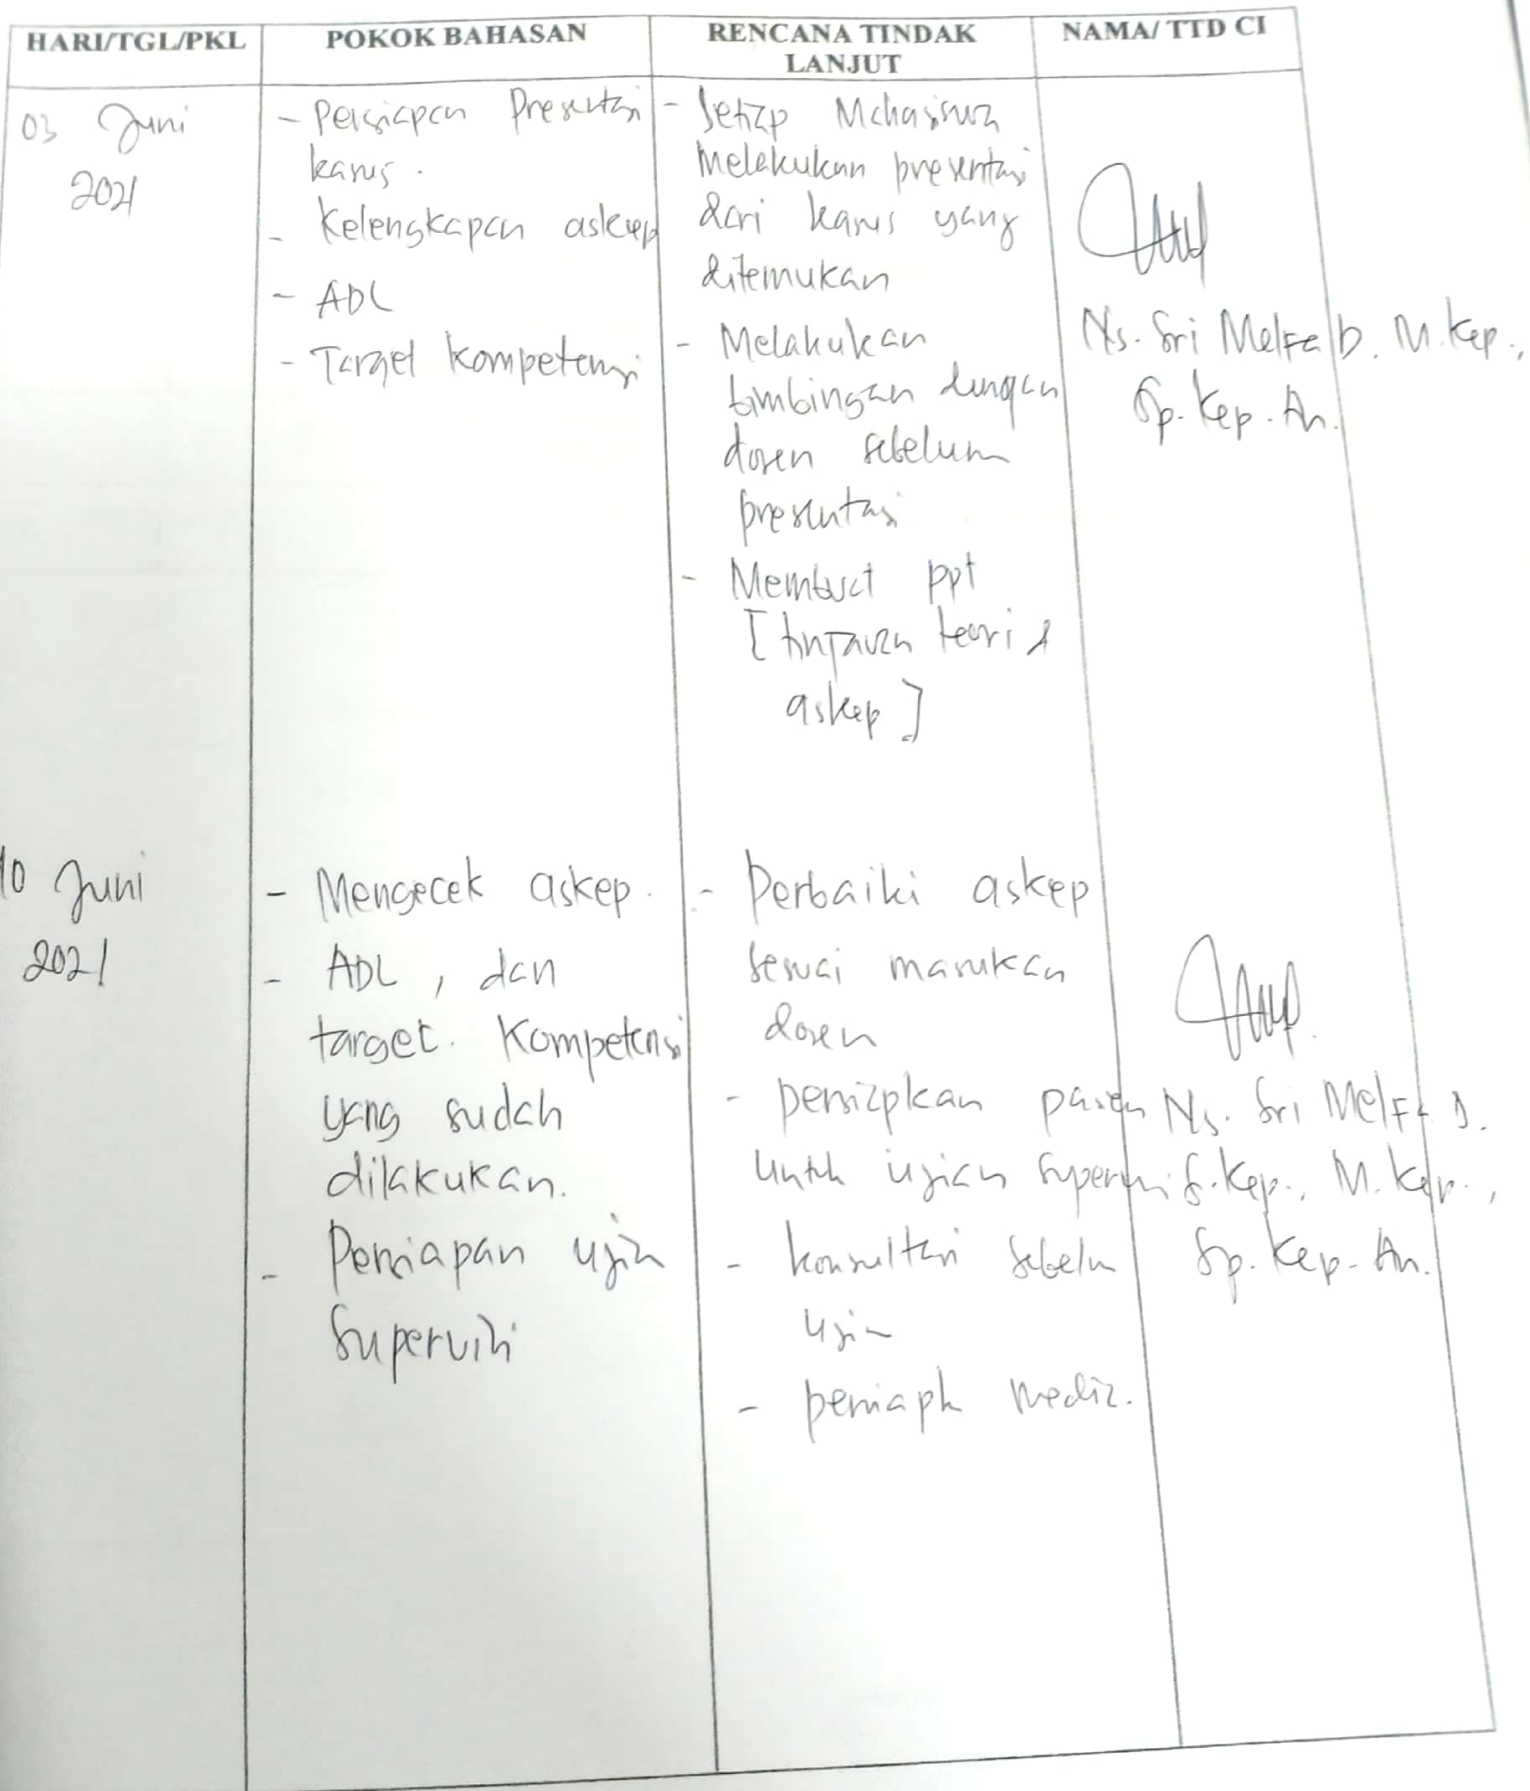 HARI/TGL/PKL
POKOK BAHASAN
RENCANA TINDAK
LANJUT
NAMA/ TTD CI
03 Juni
2021
- Persiapan Presentasi
kasus.
- Kelengkapan askep
- ADL
- Target kompetensi
- Setiap Mahasiswa
Melakukan presentasi
dari kasus yang
ditemukan
- Melakukan
bimbingan dengan
dosen sebelum
presentasi
- Membuat ppt
[tinjauan teori &
askep]
Ns. Sri Melfa D. M.Kep.,
Sp.Kep.An.
10 Juni
2021
- Mengecek askep.
- ADL, dan
target. Kompetensi
yang sudah
dilakukan.
- Persiapan ujian
Supervisi
- Perbaiki askep
sesuai masukan
dosen
- persiapkan pasien
untuk ujian supervisi
- konsultasi sebelum
ujian
- persiapk media.
Ns. Sri Melfa D.
S.Kep., M.Kep.,
Sp.Kep.An.